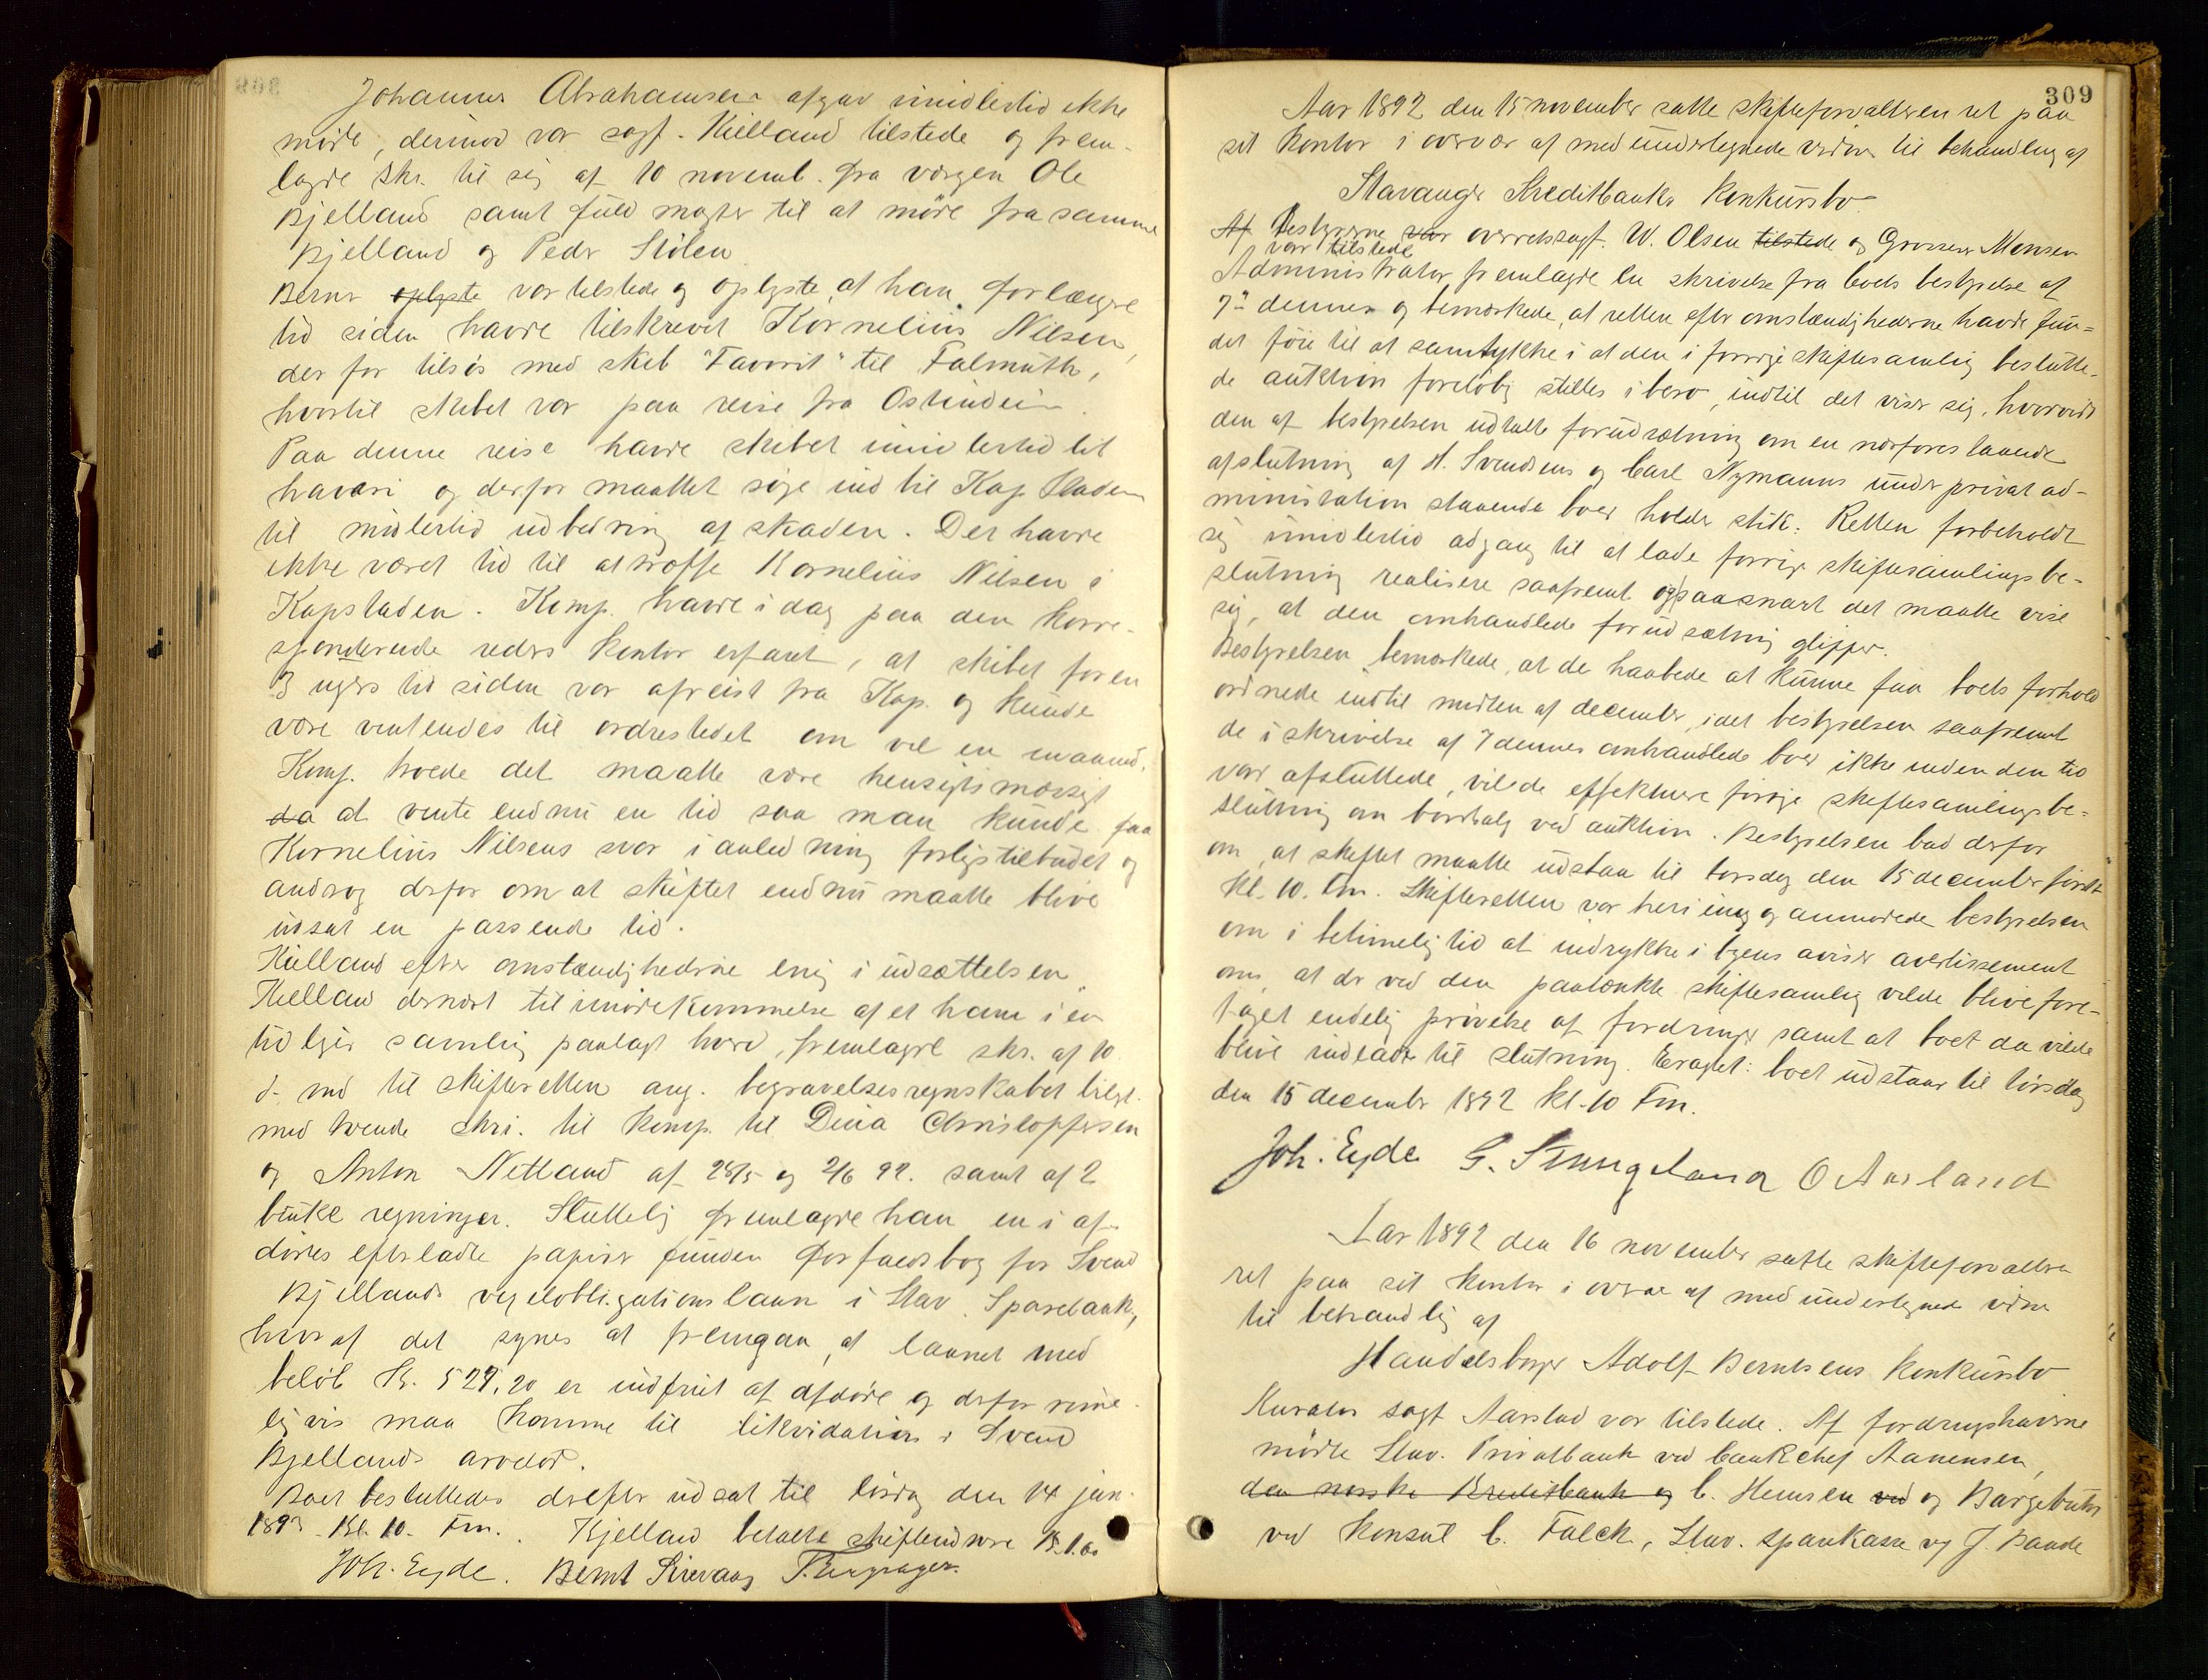 Johannes Abrahamsen afgav imidlertid ikke
møde, derimod var sagf. Kielland tilstede og frem-
lagde skr. til sig af 10 novemb. fra værgen Ole
Bjelland samt fuldmagter til at møde fra samme
Bjelland og Peder Stølen
Berner oplyste var tilstede og oplyste, at han for længre
tid siden havde tilskrevet Kornelius Nilsen,
der for tilsøs med skib "Favorit" til Falmuth,
hvortil skibet var paa reise fra Ostindien.
Paa denne reise havde skibet imidlertid lidt
havari og derfor maattet søge ind til Kap Staden
til midlertid udbedring af skaden. Der havde
ikke været tid til at træffe Kornelius Nilsen i
Kapstaden. Komp. havde i dag paa den korre-
sponderende reders kontor erfaret, at skibet for en
3 ugers tid siden var afreist fra Kap. og kunde
være ventendes til ordrestedet om vel en maaned.
Komp. troede det maatte være hensigtsmæssigt
da at vente endnu en tid saa man kunde faa
Kornelius Nilsens svar i anledning forligstilbudet og
androg derfor om at skiftet endnu maatte blive
udsat en passende tid.
Kielland efter omstændighederne enig i udsættelsen.
Kielland dernæst til imødekommelse af et ham i en
tidligere samling paalagt hverv, fremlagde skr. af 10
d. md til skifteretten ang. begravelsesregnskabet bilagt
med tvende skri. til komp. til Dina Christoffersen
og Anton Netland af 28/5 og 2/6 92. samt af 2
bunke regninger. Sluttelig fremlagde han en i af-
dødes efterladte papirer funden forfaldsbog for Svend
Bjellands vexelobligationslaan i Stav. Sparebank,
hvoraf det synes at fremgaa, at laanet med
beløb Kr. 529,20 er indfriet af afdøde og derfor rime-
ligvis maa komme til likvidation i Svend
Bjellands arvelod.
Boet besluttedes derefter udsat til lørdag den 14 jan.
1893. Kl. 10. Fm. Kjelland betalte skiftendvore Kr. 1.60
Joh. Eyde. Bernt Sirevaag
309
Aar 1892 den 15 november satte skifteforvalteren ret paa
sit kontor i overvær af medundertegnede vidner til behandling af
Stavanger Kreditbanks konkursbo
Af Bestyrerne var overretssagf. W. Olsen tilstede og Grosserer Monsen
var tilstede
Administrator fremlagde en skrivelse fra boets bestyrelse af
7de dennes og bemærkede, at retten efter omstændighederne havde fun-
det føie til at samtykke i at den i forrige skiftesamling beslutte-
de auktion foreløbig stilles i bero, indtil det viser sig, hvorvidt
den af bestyrelsen udtalte forudsætning om en nærforestaaende
afslutning af H. Svendsens og Carl Nymanns under privat ad-
ministration staaende boer holder stik. Retten forbeholdt
sig imidlertid adgang til at lade forrige skiftesamlings be-
slutning realisere saafremt og saasnart det maatte vise
sig, at den omhandlede forudsætning glipper.
Bestyrelsen bemærkede, at de haabede at kunne faa boets forhold
ordnede indtil midten af december, idet bestyrelsen saafremt
de i skrivelse af 7 dennes omhandlede boer ikke inden den tid
var afsluttede, vilde effektuere forrige skiftesamlings be-
slutning om bortsalg ved auktion. Bestyrelsen bad derfor
om, at skiftet maatte udstaa til torsdag den 15 december førstk
kl. 10. Fm. Skifteretten var heri enig og anmodede bestyrelsen
om i betimelig tid at indrykke i byens aviser avertissement
om, at der ved den paatænkte skiftesamling vilde blive fore-
taget endelig prøvelse af fordringer samt at boet da vilde
blive indladt til slutning. Eragtet: boet udstaar til torsdag
den 15 december 1892 kl. 10 Fm.
Joh. Eyde G. Stangeland O Aarland
Aar 1892 den 16 november satte skifteforvalteren
ret paa sit kontor i overvær af medundertegnede vidne
til behandling af
Handelsborger Adolf Berntsens konkursbo
Kurator sagf. Aarstad var tilstede. Af fordringshaverne
mødte Stav. Privatbank ved bankchef Aanensen,
den norske Kreditbank og C. Hemsen ved og Bargebuhr
ved konsul C. Falck, Stav. sparekasse v/ J. Baade